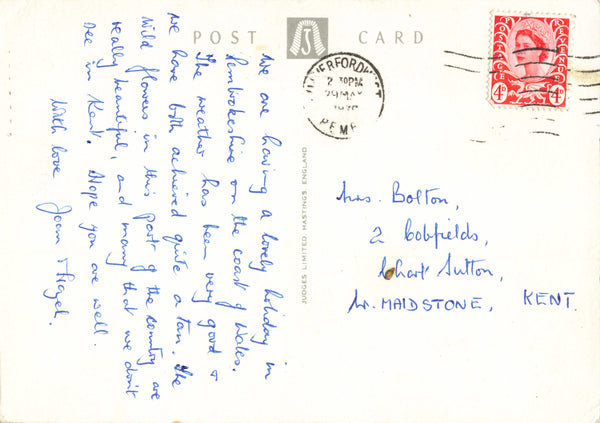 POST CARD
We are having a lovely holiday in
Pembrokeshire on the coast of Wales.
The weather has been very good &
we have both achieved quite a tan. The
wild flowers in this part of the country are
really beautiful, and many that we don't
see in Kent. Hope you are well.
With love Joan &
JUDGES LIMITED, HASTINGS, ENGLAND
2 30PM
29 MAY
PEMB
POSTAGE
REVENUE
4D
4D
Mrs. Bolton,
2 Cobfields,
Chart Sutton,
Nr. MAIDSTONE, KENT.